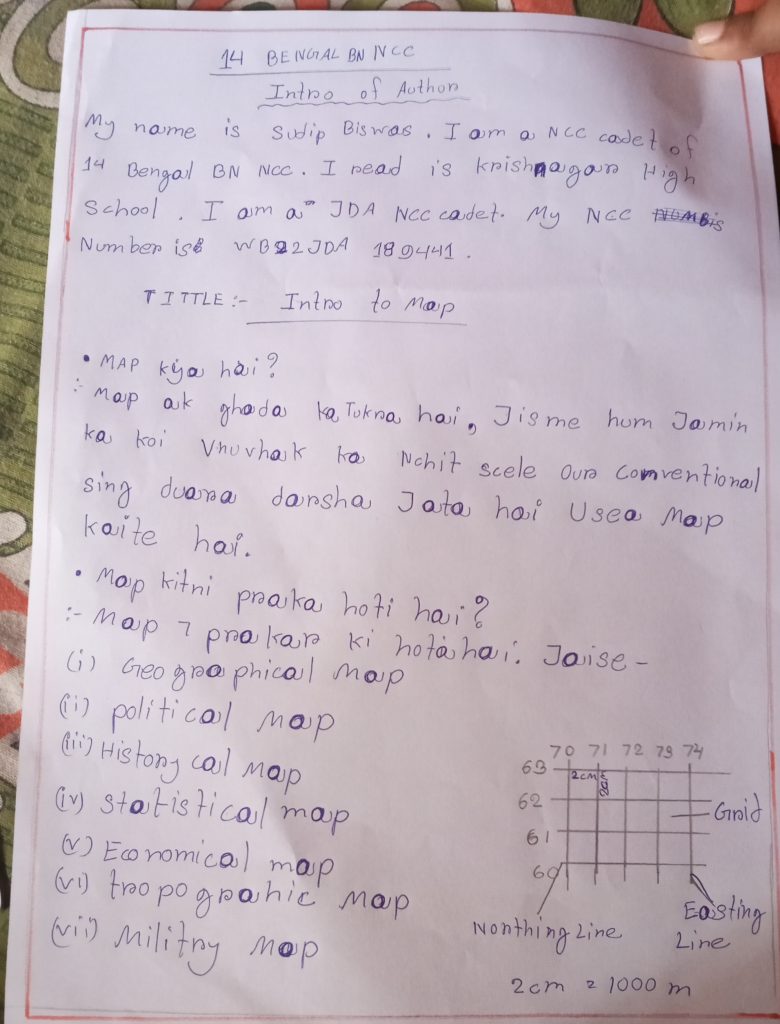 14 BENGAL BN NCC
Intro of Author
My name is Sudip Biswas. I am a NCC cadet of
14 Bengal BN NCC. I read is krishnagar High
School. I am a JDA NCC cadet. My NCC
Number is WB22JDA 189441.
TITTLE :- Intro to Map
• MAP kya hai?
:- Map ak ghada ka Tukra hai, Jisme hum Jamin
ka koi Vhuvhak ka Nchit scele Our Comventional
sing duara darsha Jata hai Usea Map
kaite hai.
• Map kitni praka hoti hai?
:- Map 7 prakar ki hota hai. Jaise -
(i) Geographical Map
(ii) political Map
(iii) History cal Map
(iv) statistical map
(v) Economical map
(vi) tropograhic Map
(vii) Militry Map
70 71 72 73 74
63 2cm 2cm
62 Grid
61
60
Northing Line
Easting Line
2cm = 1000 m